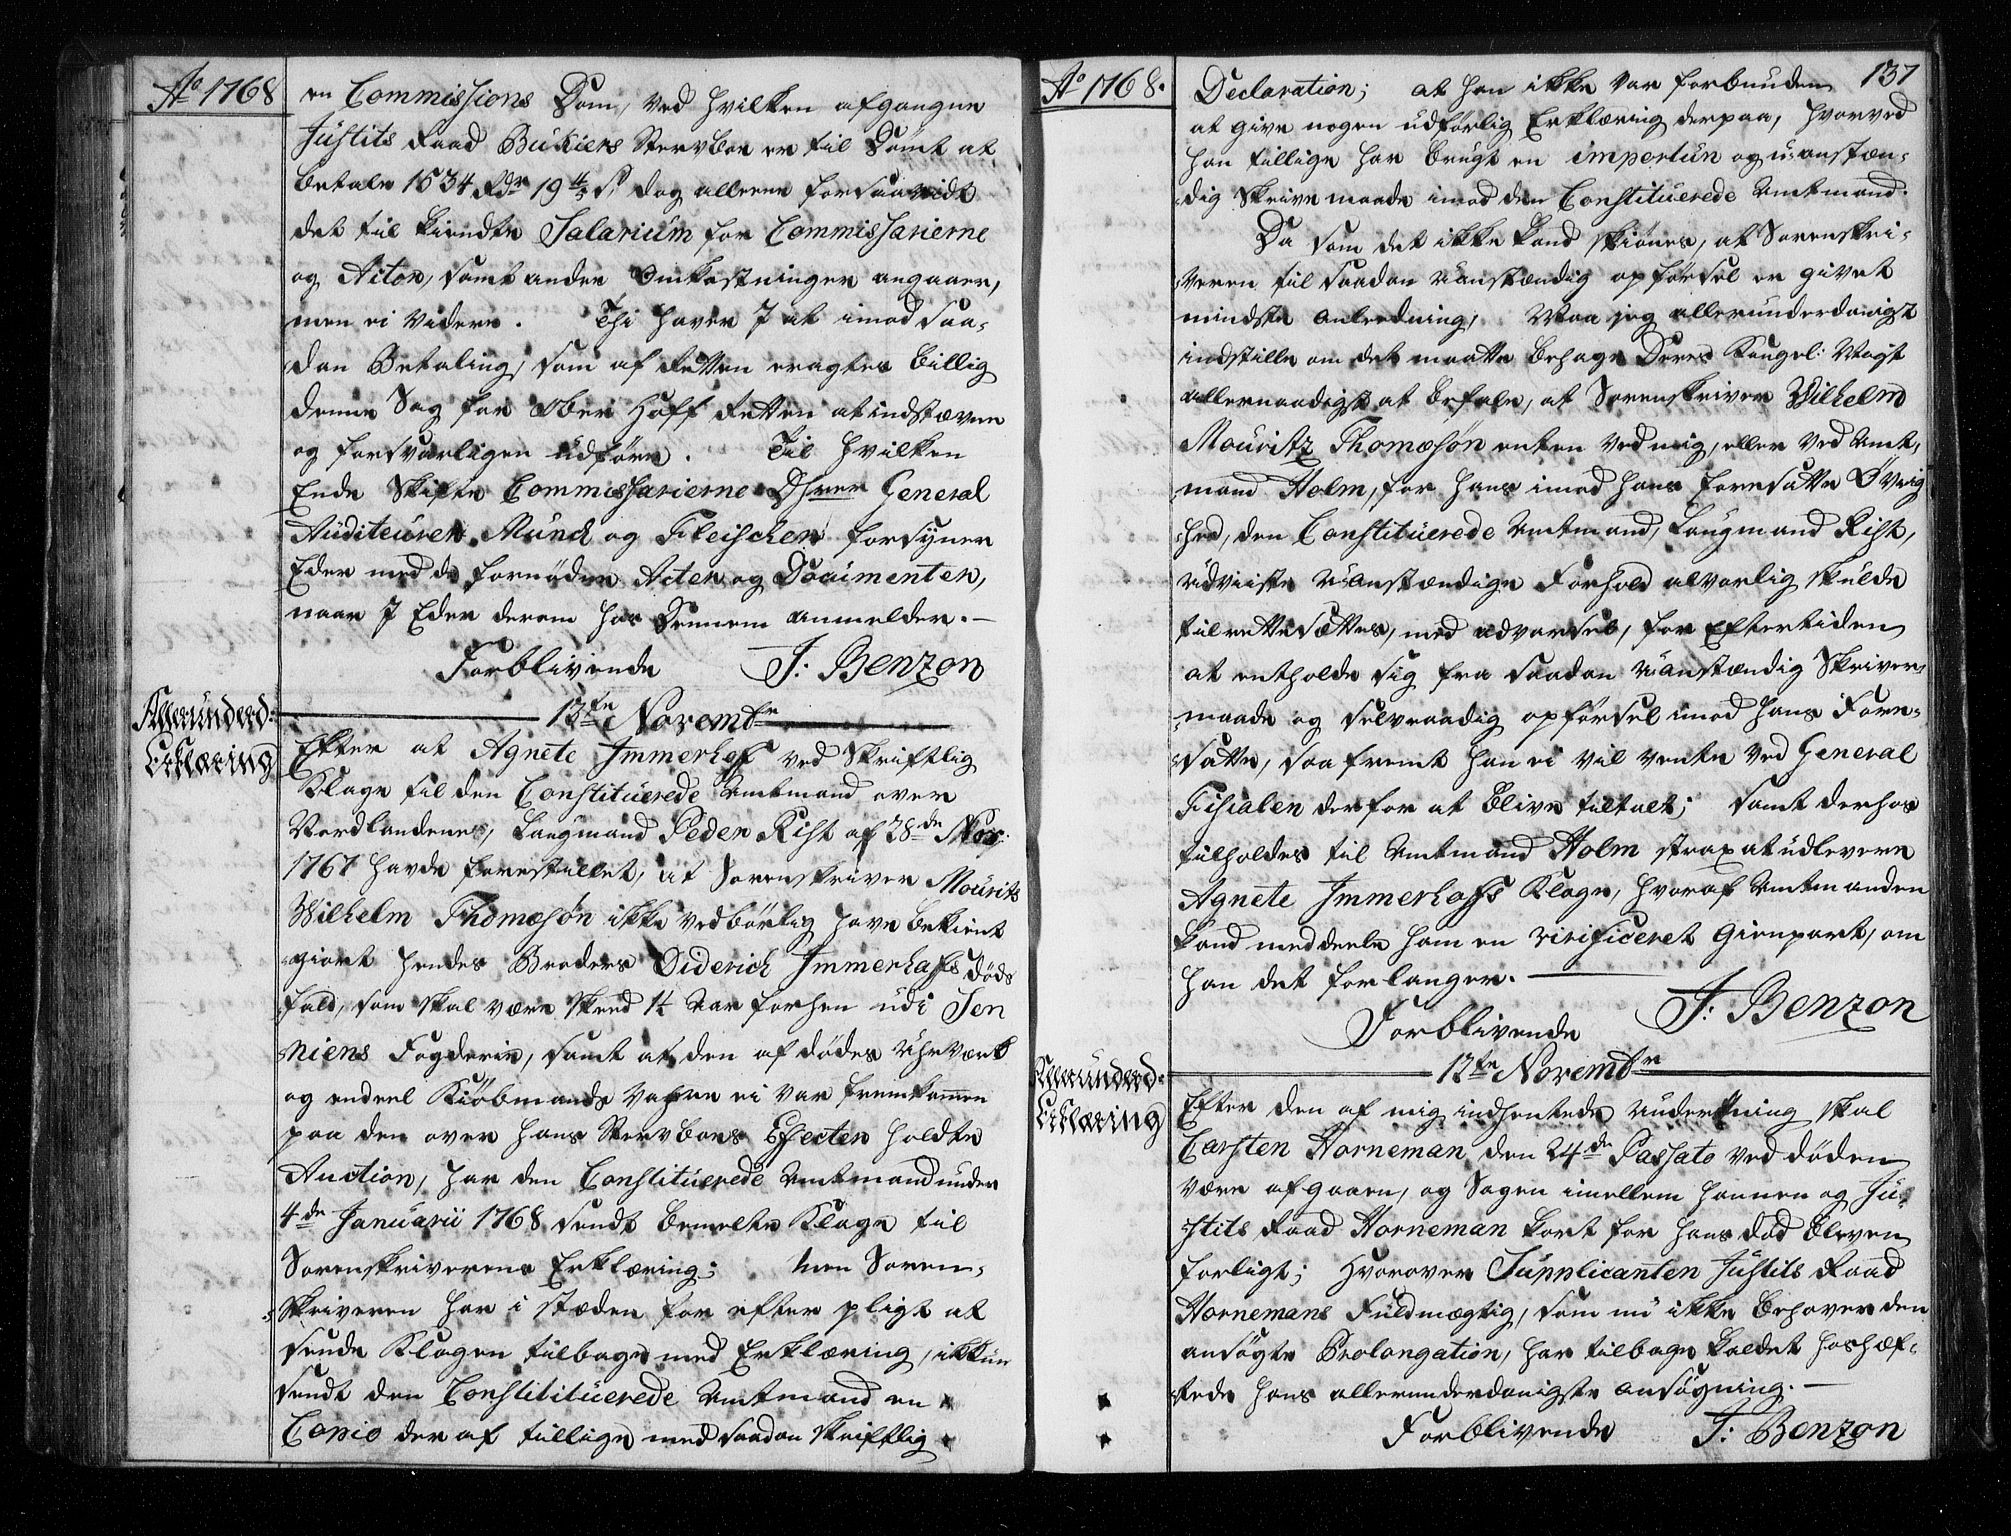 Ao 1768
en Commissions Dom, ved hvilken afgangne
Justits Raad Bukiers Stervboe er til Dömt at
betale 1534 Rdr 19 4/5 s, dog alleene forsaavidt
det til kiendte Salarium for Commissarierne
og Actor, samt andre Omkostninger angaaer,
men ei videre. Thi haver I at imod saa-
dan Betaling, som af Retten eragtes billig
denne Sag for Ober Hoff Retten at indstævne
og forsvarligen udføre. Til hvilken
Ende Skifte Commissarierne Dhrer General
Auditeuren Munch og Fleischer forsyner
Eder med de fornødne Acter og Documenter,
naar I Eder derom hos Dennem anmelder.—
Forblivende J: Benzon
12te Novembr
Allerunderd:
Erklæring
Efter at Agnete Immerhof ved Skriftlig
Klage til den Constituerede Amtmand over
Nordlandene, Laugmand Peder Rist af 28de Nov:
1767 havde forestillet, at Sorenskriver Mouritz
Wilhelm Thomæsøn ikke vedbörlig have bekient
giort hendes Broders Diderich Immerhofs Døds
fald, som skal være skeed 1½ Aar forhen udi Sen
niens Fogderie, samt at den afdødes Uhrværk
og endeel Kiöbmands Vahre ei var fremkommen
paa den over hans Stervboes Effecter holdte
Auction, har den Constituerede Amtmand under
4de Januarii 1768 sendt bemelte Klage til
Sorenskriverens Erklæring; Men Soren-
skriveren har i stæden for efter pligt at
sende Klagen tilbage med Erklæring, ikkun
sendt den Constitituerede Amtmand en
Copie der af tillige med saadan skriftlig
Ao 1768.
137
Declaration; at han ikke var forbunden
at give nogen udförlig Erklæring derpaa, hvorved
han tillige har brugt en importun og u-anstæn-
dig Skrivemaade imod den Constituerede Amtmand.
Da som det ikke kand skiønes, at Sorenskri-
veren til saadan uanstændig opførsel er givet
mindste Anleedning, Maa jeg allerunderdanigst
indstille om det maatte behage Deres Kongel: Mayt
allernaadigst at befale, at Sorenskriver Wilhelm
Mouritz Thomæsøn enten ved mig, eller ved Amt-
mand Holm, for hans imod hans foresatte Øvrig
hed, den Constituerede Amtmand, Laugmand Rist,
udviiste uanstændige Forhold alvorlig skulde
tilrettesættes, med advarsel, for Eftertiden
at entholde sig fra saadan uanstændig Skriver-
maade og selvraadig opførsel imod hans Fore-
satte, saafremt han ei vil vente ved General
Fiscalen derfor at blive tiltalt; samt derhos
tilholdes til Amtmand Holm strax at udlevere
Agnete Immerhofs Klage, hvoraf Amtmanden
kand meddeele ham en vidificeret Gienpart, om
han det forlanger.—
Forblivende J: Benzon
12te Novembr
Allerunderd:
Erklæring
Efter den af mig indhentede Underretning skal
Carsten Horneman den 24de Passato ved døden
være afgaaen, og Sagen imellem hannem og Ju-
stits Raad Horneman kort for hans død bleven
forligt; Hvorover Supplicanten Justits Raad
Hornemans Fuldmægtig, som nu ikke behøver den
ansøgte Prolongation, har tilbage kaldet hoshæf-
tede hans allerunderdanigste Ansøgning.—
Forblivende J: Benzon